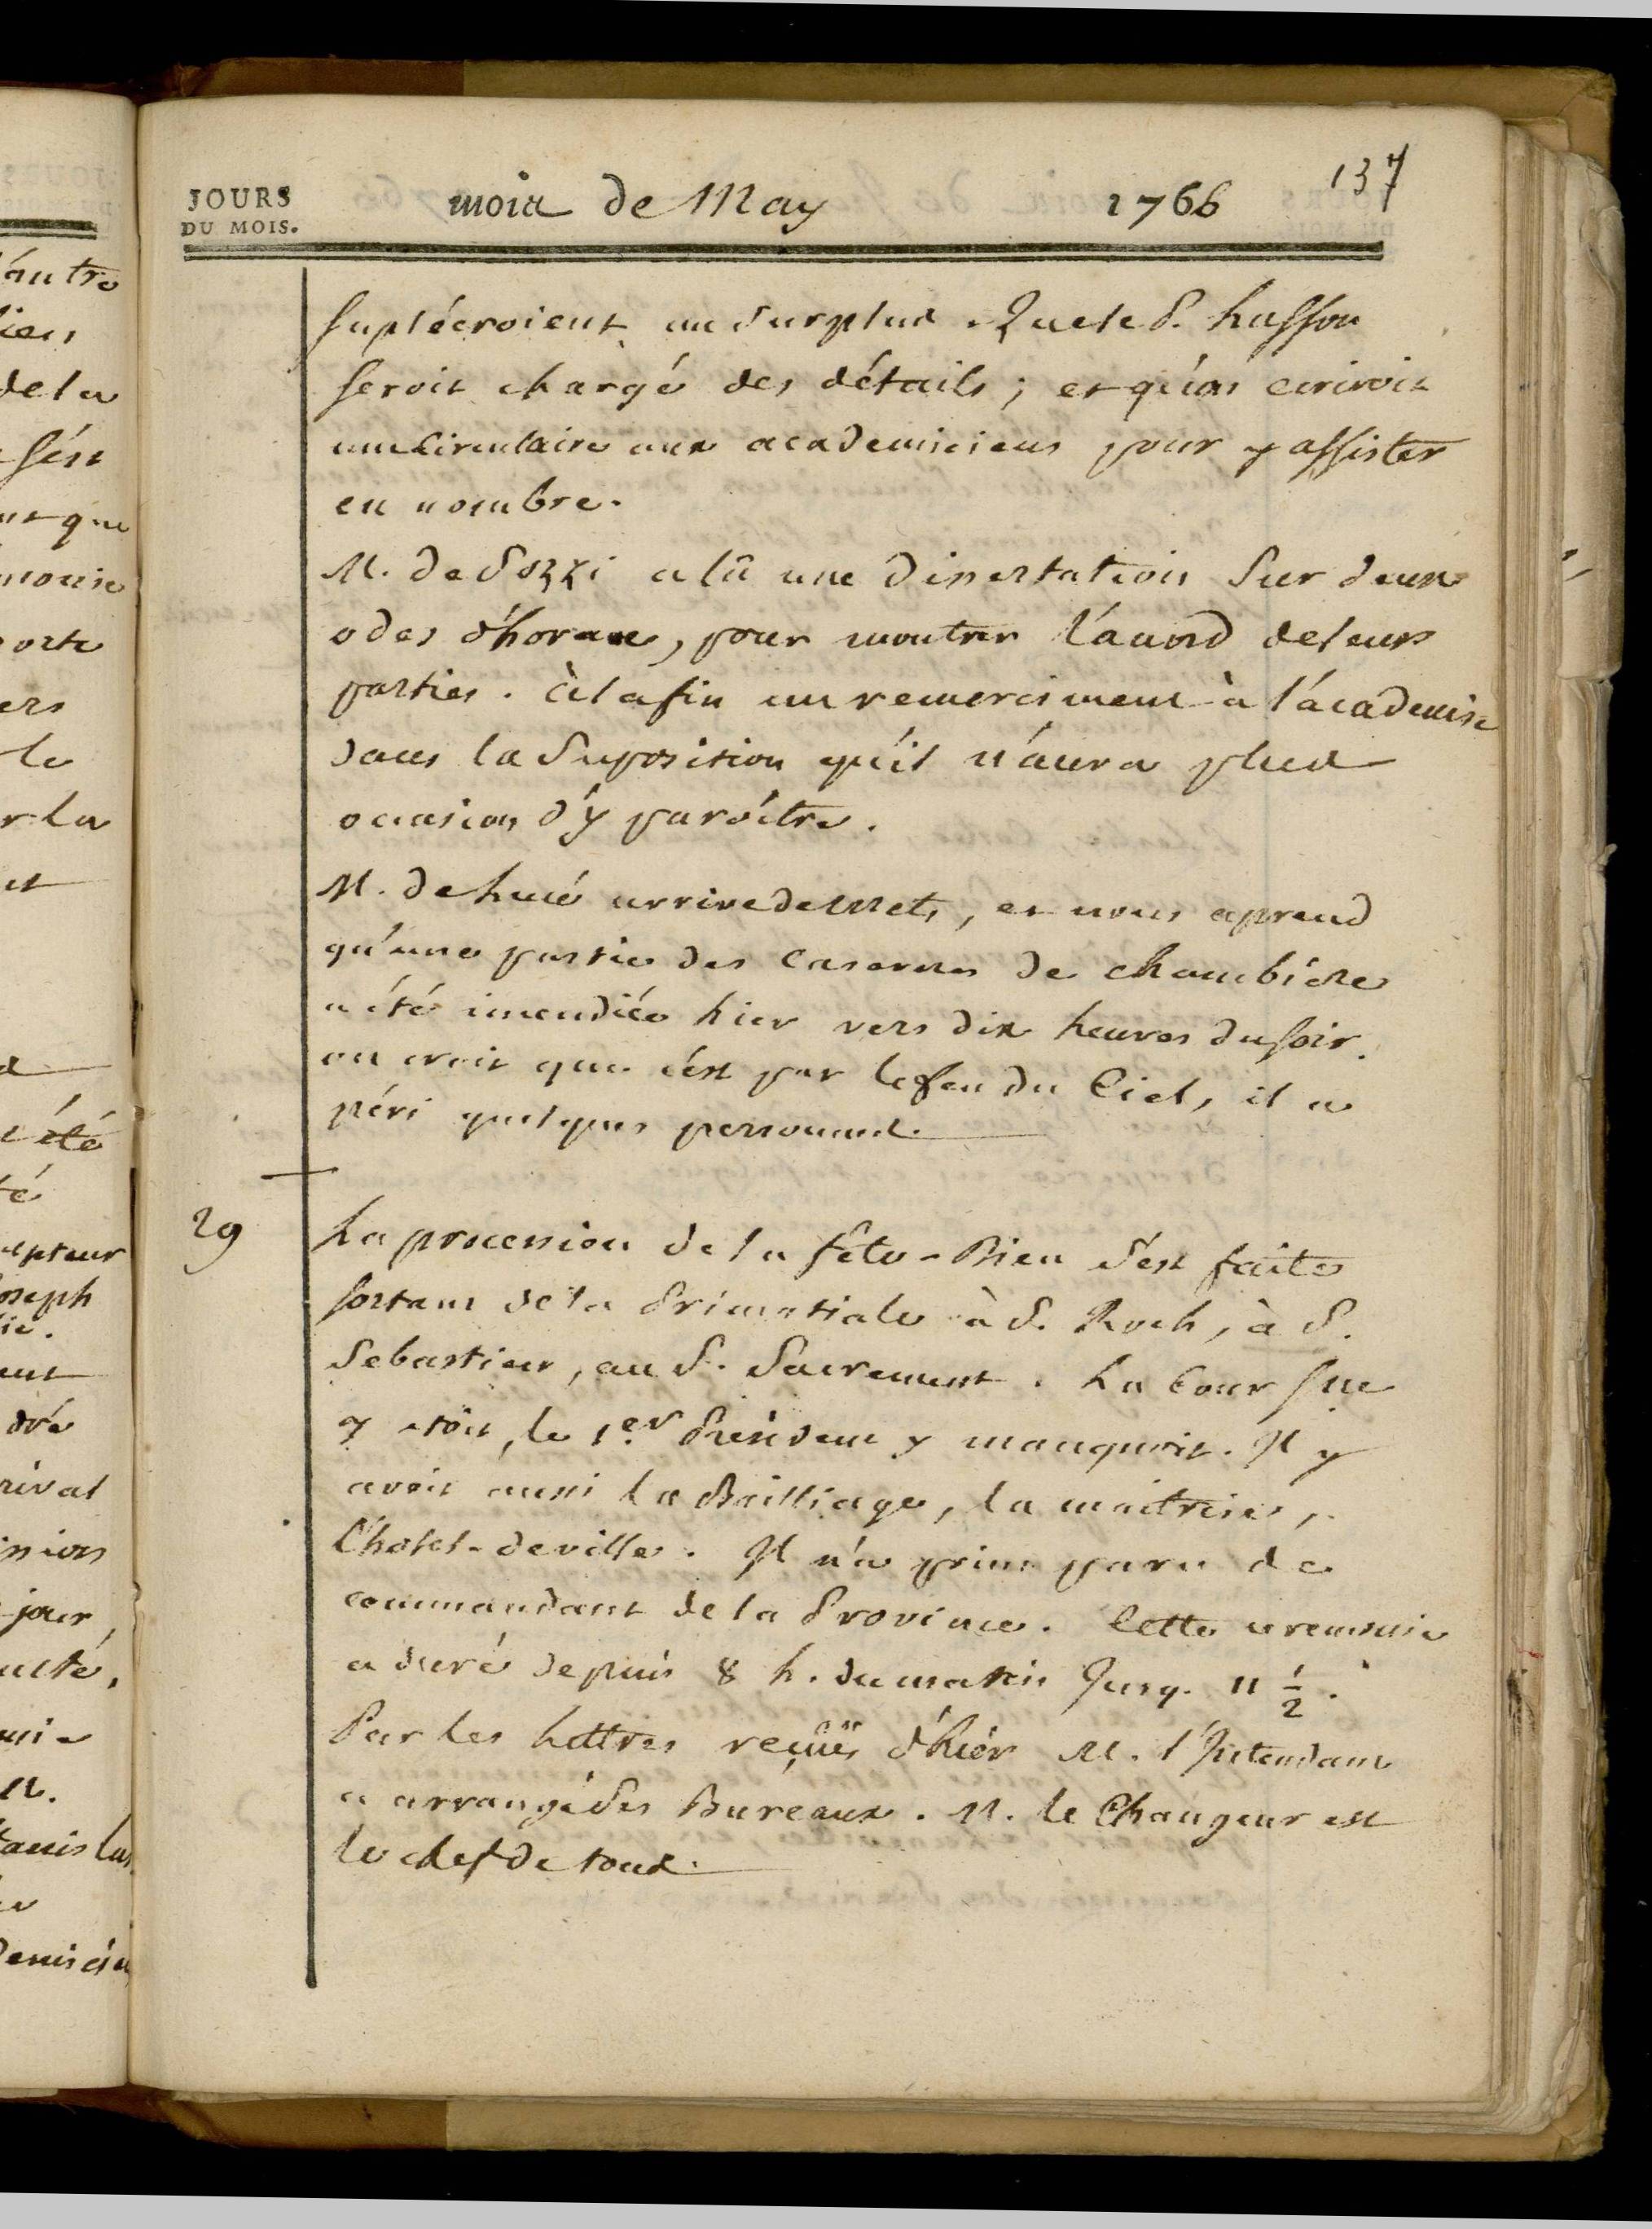 l'áutre
lieu
de la
sént
nt que
monie
orte
ers
le
r la
et
l été
té
lpteur
oseph
ie.
ent
dré
rival
niers
jour,
ulté,
M.
tanislas
demicien
137
JOURS
DU MOIS.
mois de May 1766
supléeroient au surplus. Que le S. husson
seroit chargé des détails; et qu'on ecriroit
une circulaire aux academiciens pour y assister
en nombre.
M. de Sozzi a lû une dissertation sur deux
odes d'horace, pour montrer l'acord de leurs
parties. à la fin un remerciment à l'académie
dans la suposition qu'il n'aura plus
occasion d'y paroître.
M. de hué arrive de Mets, et nous aprend
qu'une partie des casernes de chambiére
a été incendiée hier vers dix heures du soir.
on croit que c'est par le feu du Ciel, il a
péri quelques personnes.
29
La procession de la fête-Dieu s'est faite
sortant de la Primatiale à S. Roch, à S.
Sebastien, au S. Sacrement. La Cour sne
y etoit, le 1.er Président y manquoit. Il y
avoit aussi le Bailliage, la maitrise,
l'hotel-de ville. Il n'a point paru de
commandant de la Province. Cette ceremonie
a duré depuis 8 h. du matin Jusq. 11 1/2.
Par les lettres reçuës d'hiér M. l'Intendant
a arrangé ses Bureaux. M. le Changeur est
le chef de tous.